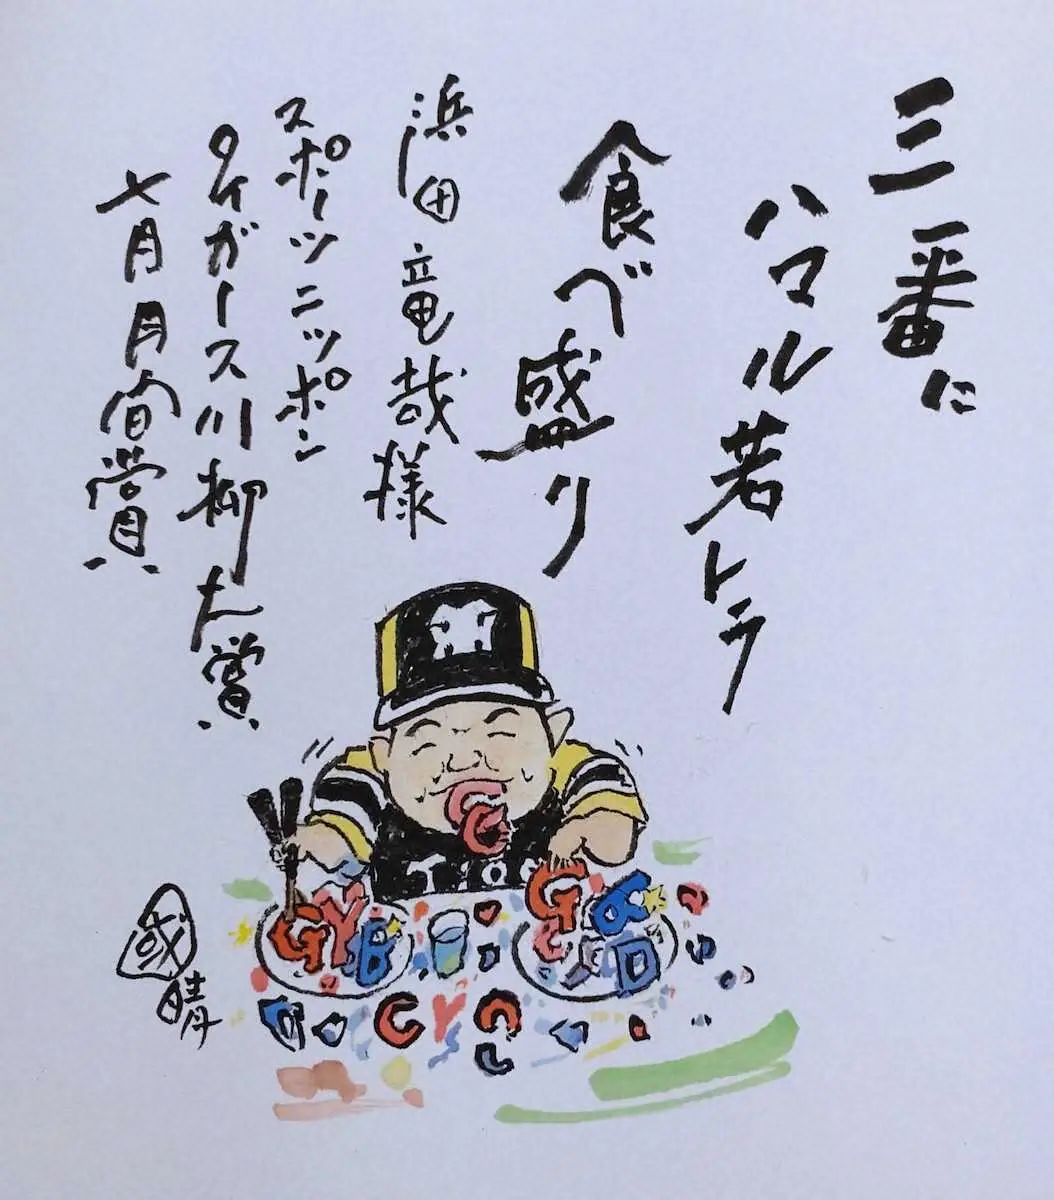 三番に
ハマル若トラ
食べ盛り
浜田竜哉様
スポーツニッポン
タイガース川柳大賞
七月月間賞
國晴
G Y B
G D
C Y